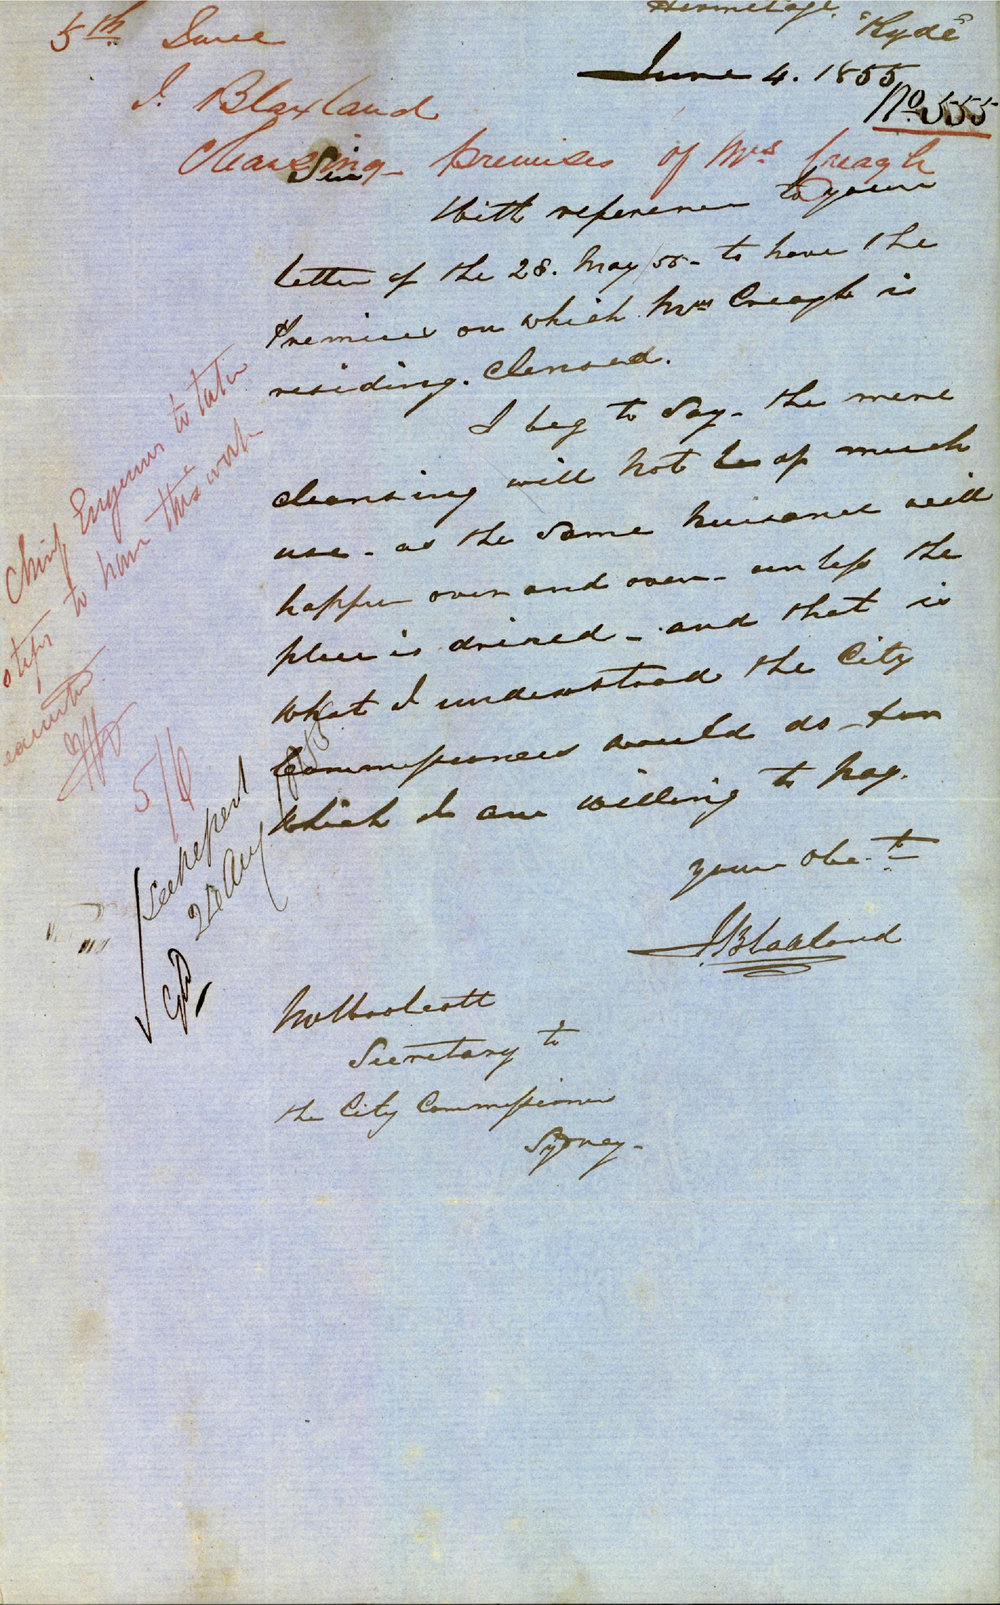 Hermitage
"Ryde"
June 4. 1855
No. 555
5th June
J. Blaxland
Cleansing premises of Mrs Creagh
Sir
With reference to your
letter of the 28. May/55 - to have the
Premises on which Mrs Creagh is
residing. Clensed.
I beg to Say - the mere
cleansing will not be of much
use - as the Same nuisance will
happen over and over - unless the
place is drained - and that is
what I understood the City
Commissioners would do - for
which I am willing to pay.
your Obe.t
J. Blaxland
Secretary to
the City Commissioner
Sydney -
Chief Engineer to take
steps to have this work
executed
5/6
See report
28 Aug 1855